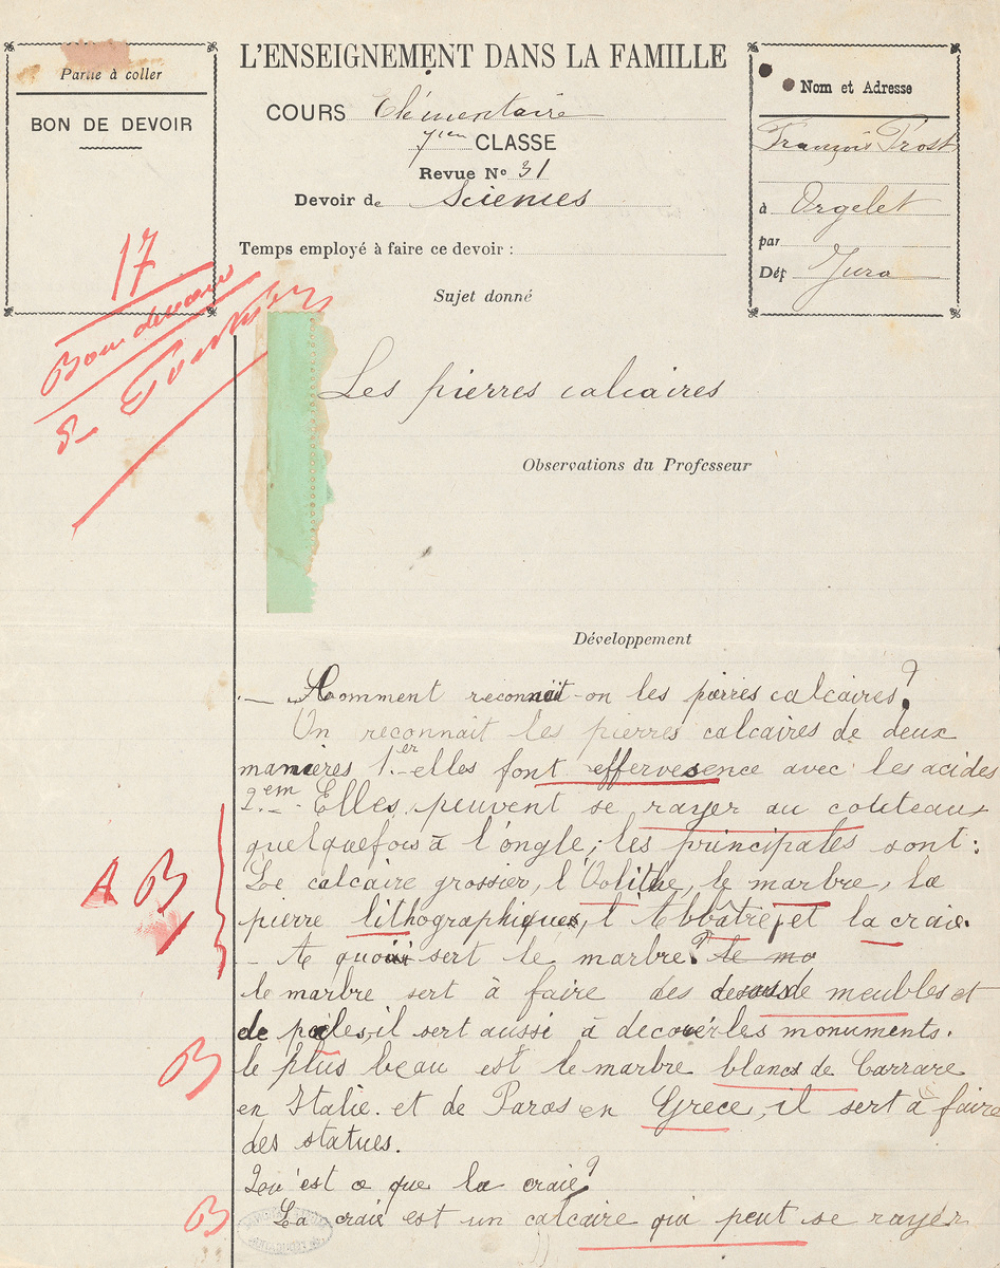 L'ENSEIGNEMENT DANS LA FAMILLE
Partie à coller
BON DE DEVOIR
COURS Elémentaire
7ième CLASSE
Revue No 31
Devoir de Sciences
Temps employé à faire ce devoir :
Nom et Adresse
François Prost
à Orgelet
par
Dép Jura
17
Bon devoir
Sujet donné
Les pierres calcaires
Observations du Professeur
Développement
- Comment reconnait-on les pierres calcaires?
On reconnait les pierres calcaires de deux
manières 1.er-elles font effervesence avec les acides
2.em- Elles peuvent se rayer au couteaux
quelquefois à l'ongle; les principales sont:
Le calcaire grossier, l'Oolithe, le marbre, la
pierre lithographique, l'Abbâtre, et la craie.
A B
- A quoi sert le marbre? le ma
le marbre sert à faire des dessus de meubles et
de poêles, il sert aussi à decorer les monuments.
B
le plus beau est le marbre blancs de Carrare
en Italie. et de Paros en Grece, il sert à faire
des statues.
Qu'est ce que la craie?
B
La craie est un calcaire qui peut se rayer